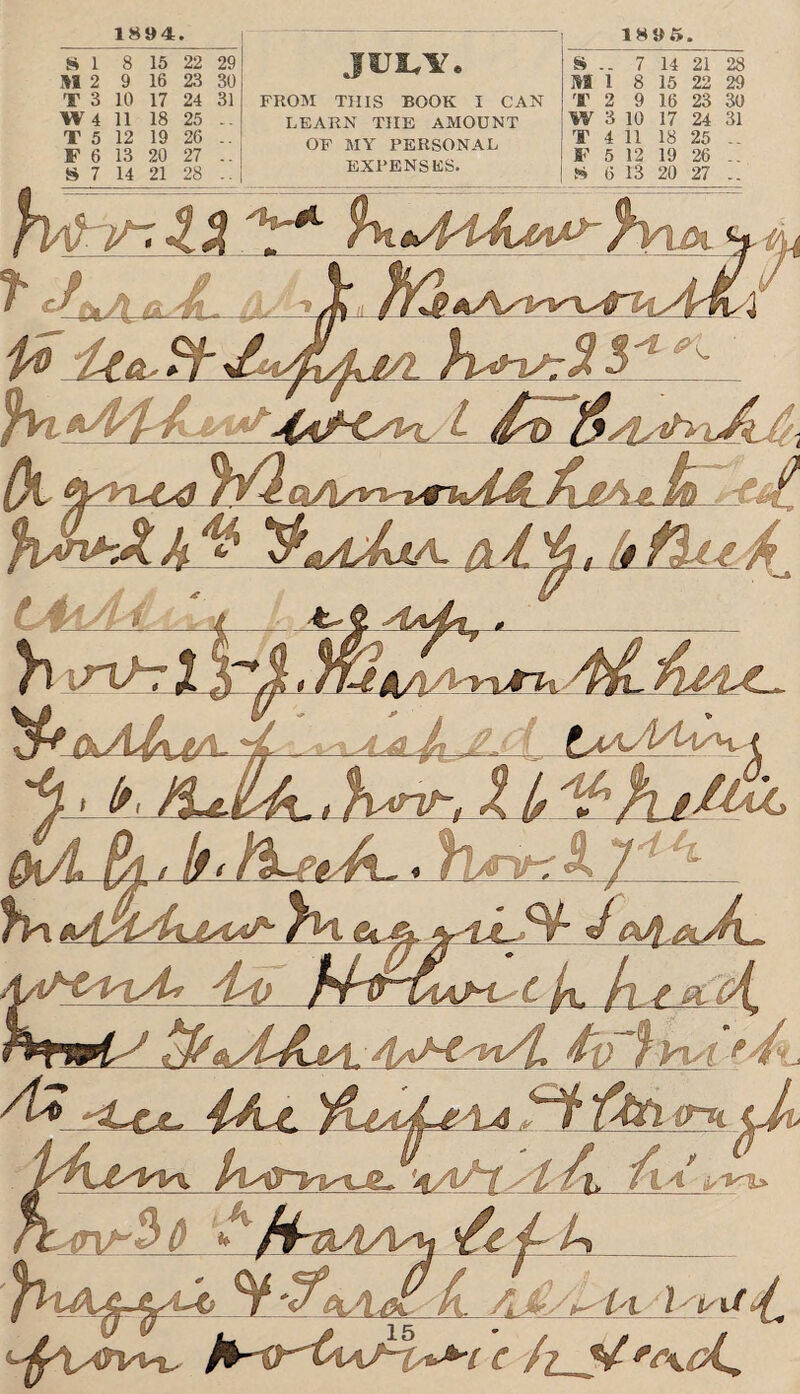 1894.
S 1 8 15 22 29
M 2 9 16 23 30
T 3 10 17 24 31
W 4 11 18 25 ..
T 5 12 19 26 ..
F 6 13 20 27 ..
S 7 14 21 28 ..
JULY.
FROM THIS BOOK I CAN
LEARN THE AMOUNT
OF MY PERSONAL
EXPENSES.
1895.
S .. 7 14 21 28
M 1 8 15 22 29
T 2 9 16 23 30
W 3 10 17 24 31
T 4 11 18 25 ..
F 5 12 19 26 ..
S 6 13 20 27 ..
Nov. 22 Matthew
& Sarah J. Wearmouth
to Tea & Supper Nov. 23rd
Matthew went to
Agnes Wearmouth here to
Nov. 24th Father at G. G. Beck
up.
Nov. 25 J. Wearmouth here
Father finished cutting
G. G. Beck. Nov. 26th Nellie
at G. G. Beck. Nov. 27th
Matthew Maggie & Sarah
went to Hotwich head
Father went to
to see the Heifers & Brough
them home with him
Nov 30th Harry left
Maggie & Sarah returned
from Hotwich Head
15